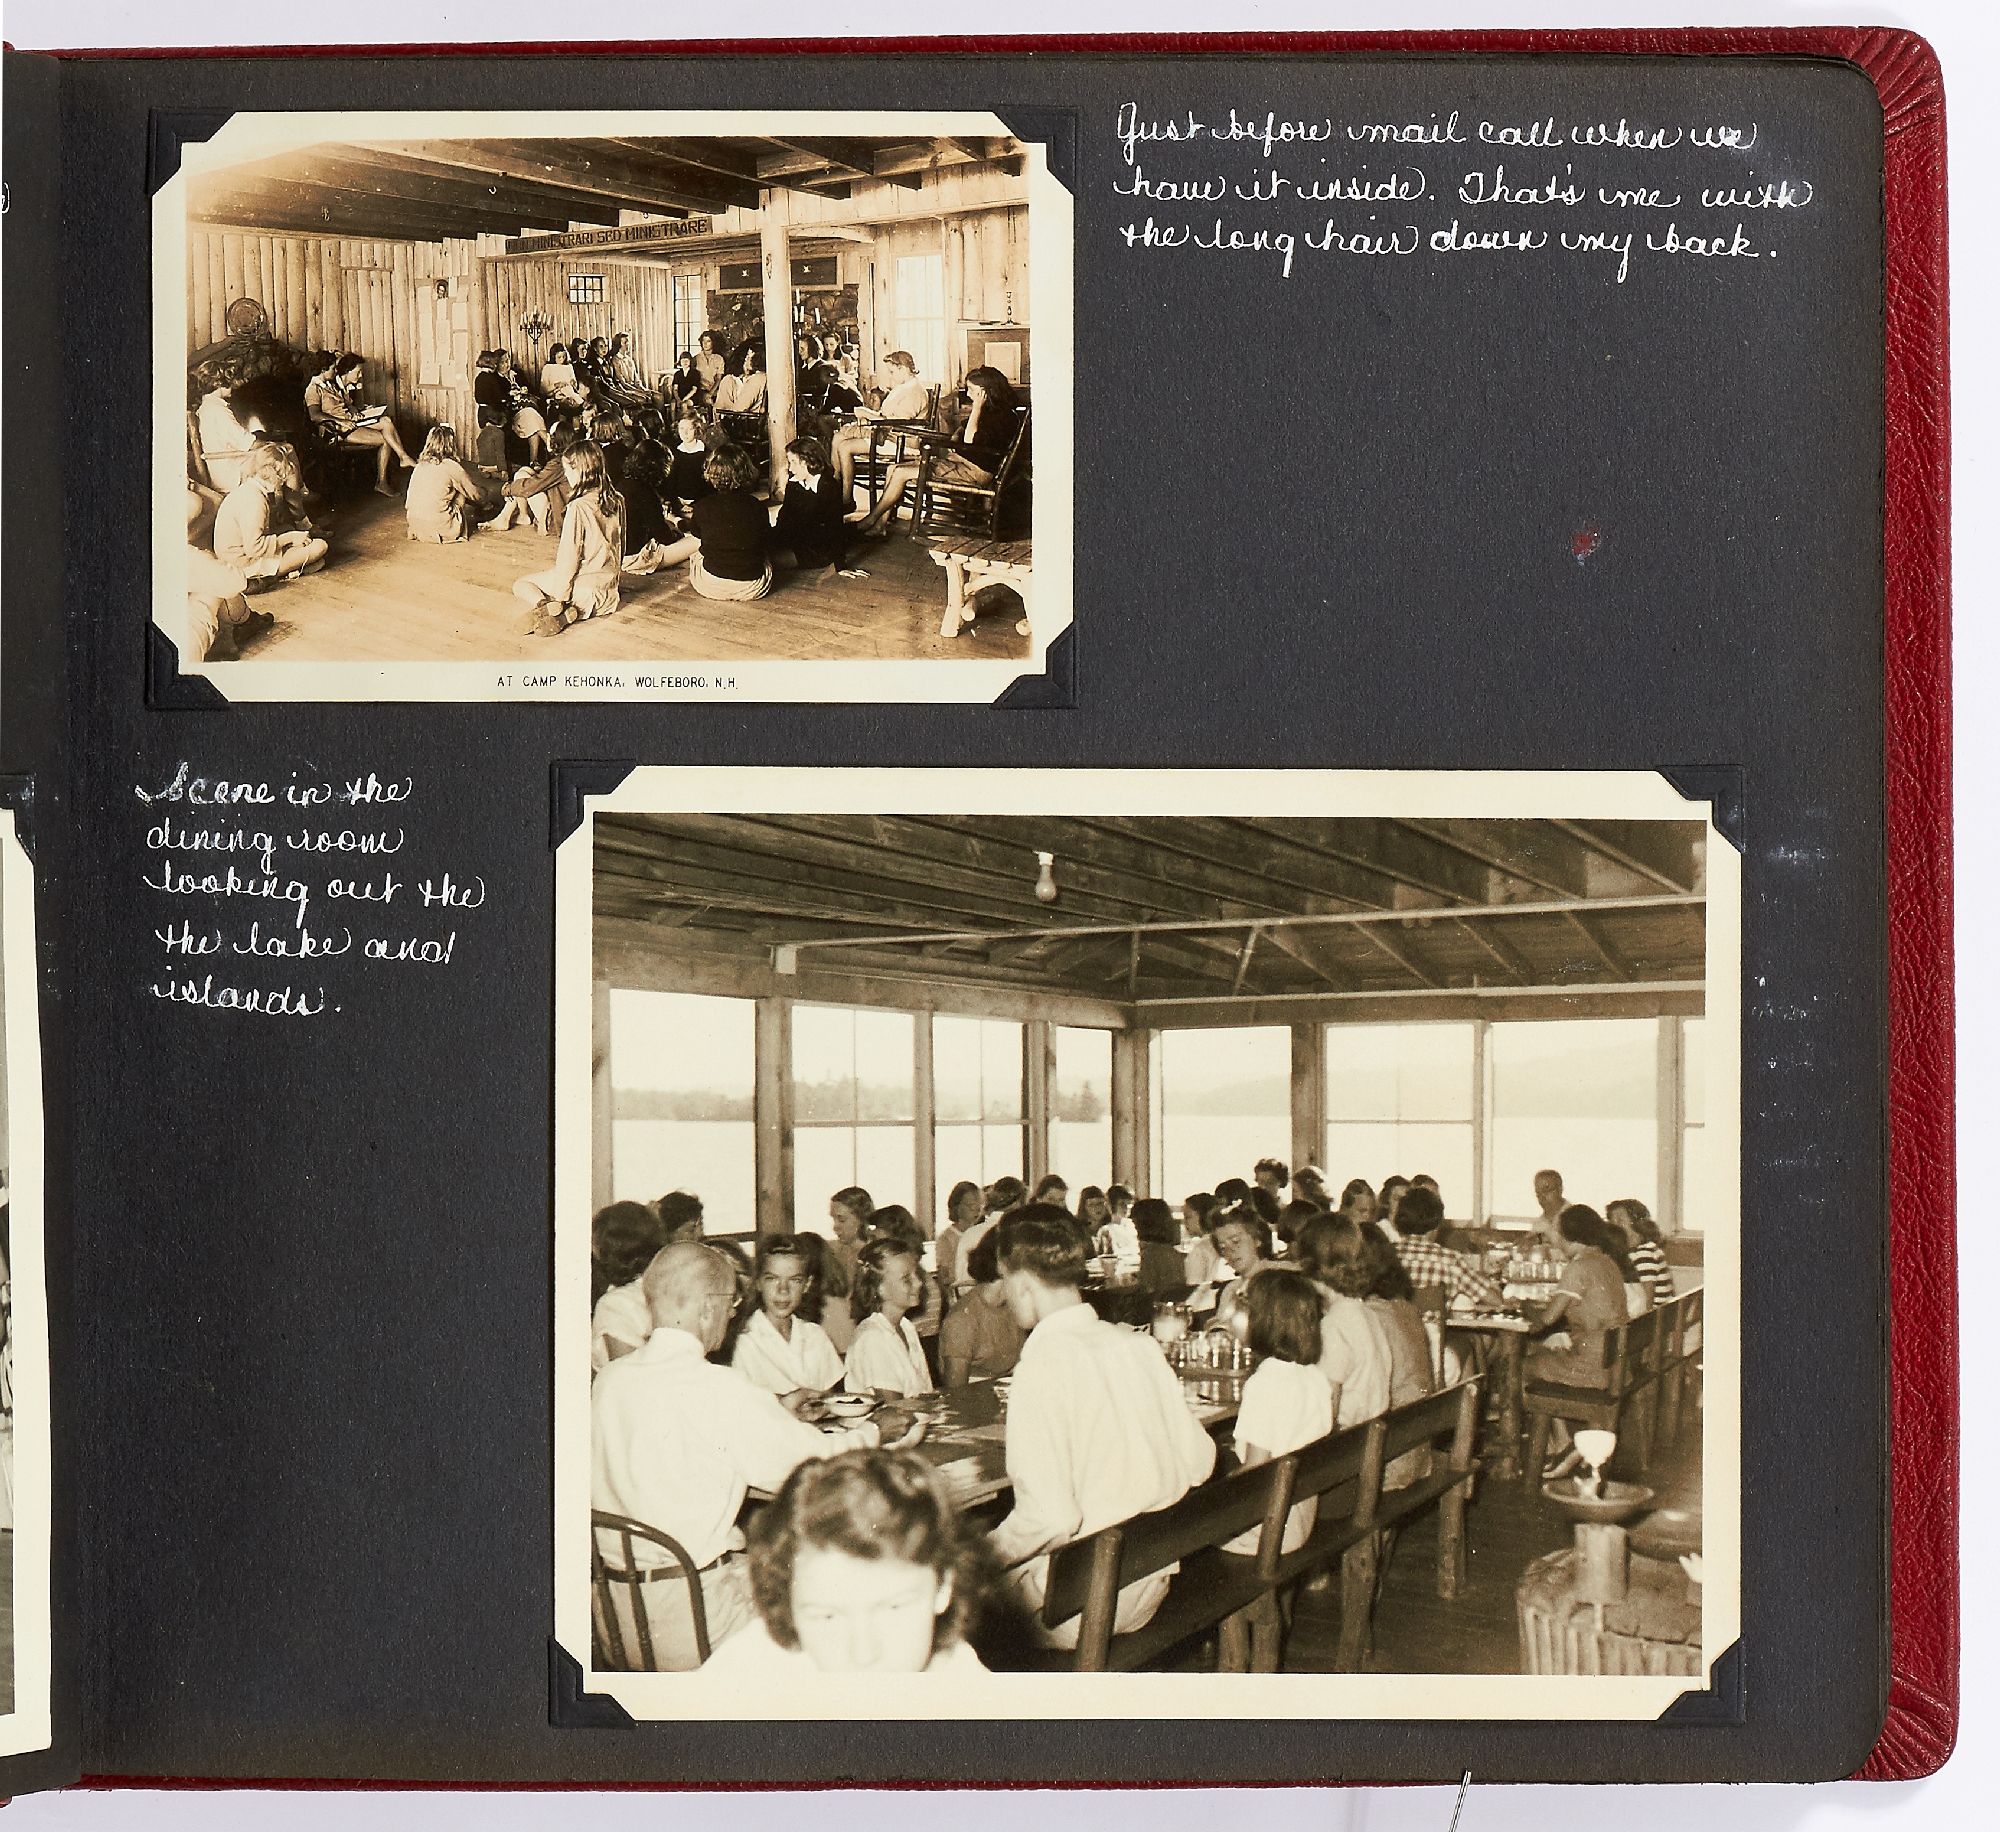 Just before mail call when we
have it inside. That's me with
the long hair down my back.
NON MINISTRARI SED MINISTRARE
AT CAMP KEHONKA, WOLFEBORO, N.H.
Scene in the
dining room
looking out the
the lake and
islands.